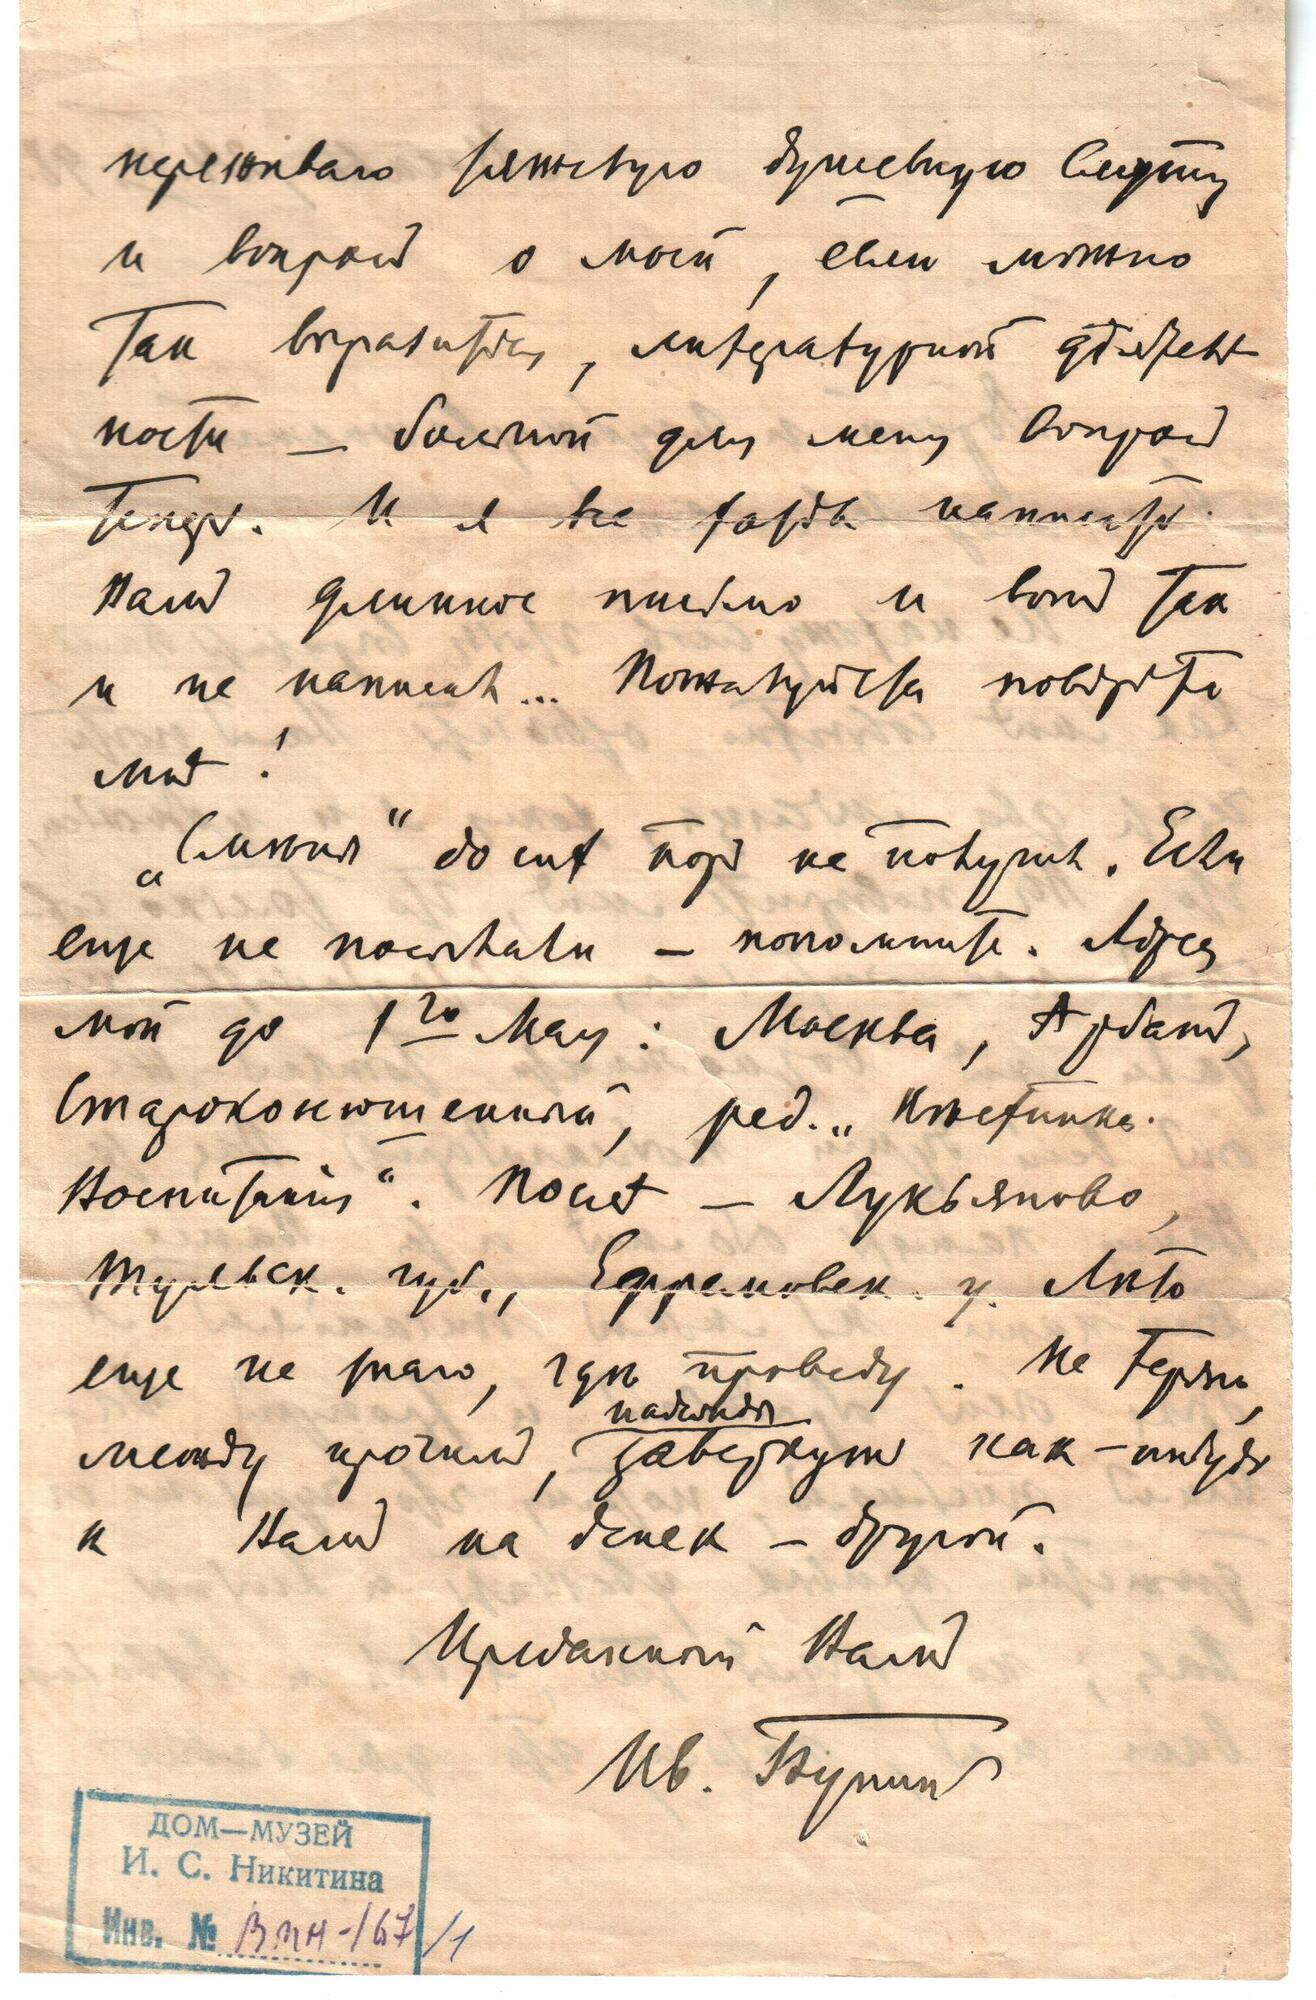 переживаю тяжелую душевную смуту
и вопросъ о моей, если можно
так выразиться, литературной дѣятель-
ности — больной для меня вопросъ
теперь. И я все хотѣлъ написать
Вамъ длинное письмо и вотъ так
и не написалъ... Пожалуйста повѣрьте
мнѣ!
„Снѣжинъ“ до сихъ поръ не получилъ. Если
еще не посылали — пошлите. Адресъ
мой до 1го Мая: Москва, Арбатъ,
Староконюшенный, ред. „Вѣстника
Воспитанія“. Послѣ — Лукьяново,
Тульск. губ., Ефремовск. у. Лѣто
еще не знаю, гдѣ проведу. Не теряю,
надежды
между прочимъ, завернуть как-нибудь
к Вамъ на денек-другой.
Преданный Вамъ
Ив. Бунинъ
ДОМ—МУЗЕЙ
И. С. Никитина
Инв. № ВМН-167/1